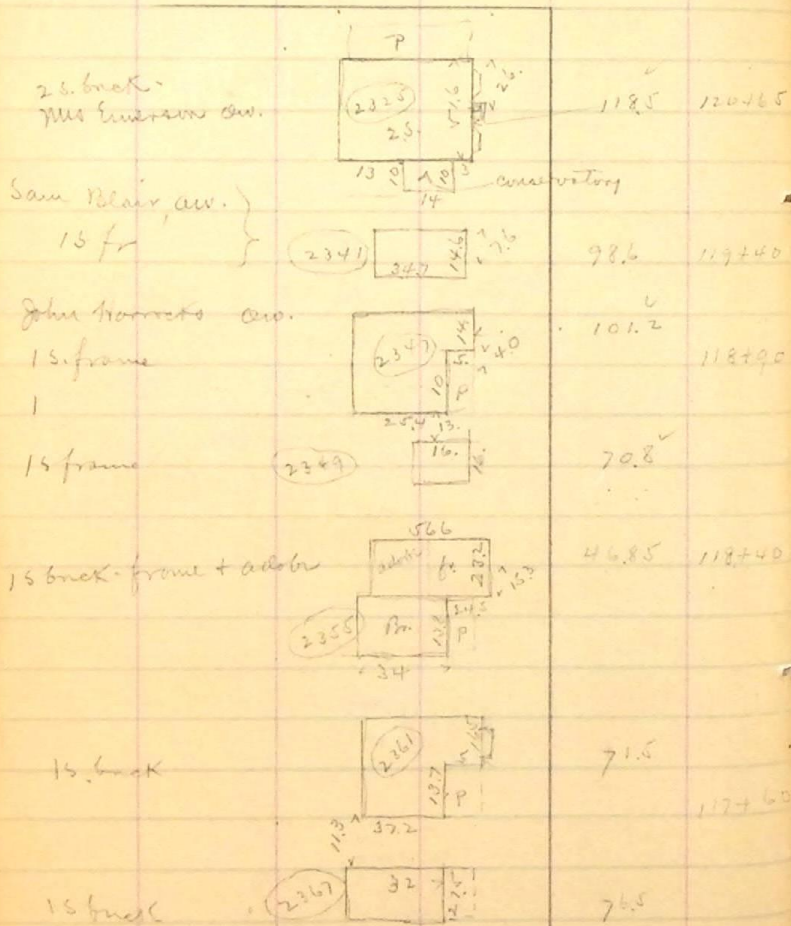 P
2 S. brick-
Mrs Emerson ow.
2325
2 S.
51.6
26.
118.5 120+65
13 10 10 3
conservatory
14
Sam Blair, ow.
1 S fr
2341
34.7
14.6
7.6
98.6 119+40
John Horrocks ow.
101.2
1 S. frame
2347
14.
5
4.0
118+90
1
10 P
25.4 13.
1 S frame
2349
16.
16.
70.8
56.6
1 S brick-frame + adobe
adobe fr. 23.2
15.3
46.85 118+40
2355
Br. P
34
1 S. brick
2361
5
13.7 P
71.5
117+60
11.3 37.2
1 S brick
2367
32
27.5
76.5